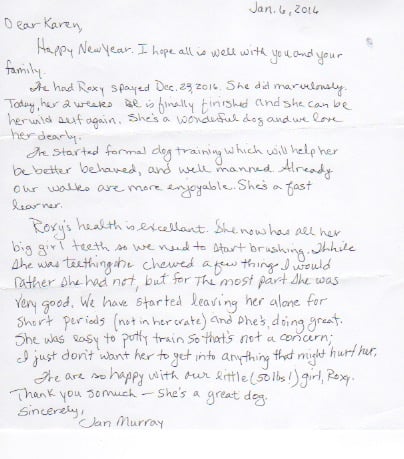 Jan. 6, 2016
Dear Karen,
Happy New Year. I hope all is well with you and your
family.
We had Roxy spayed Dec. 23, 2016. She did marvelously.
Today, her 2 weeks is finally finished and she can be
her wild self again. She's a wonderful dog and we love
her dearly.
We started formal dog training which will help her
be better behaved, and well manned. Already
our walks are more enjoyable. She's a fast
learner.
Roxy's health is excellent. She now has all her
big girl teeth so we need to start brushing. While
she was teething she chewed a few things I would
rather she had not, but for the most part she was
very good. We have started leaving her alone for
short periods (not in her crate) and she's, doing great.
She was easy to potty train so that's not a concern;
I just don't want her to get into anything that might hurt her.
We are so happy with our little (50 lbs!) girl, Roxy.
Thank you so much — She's a great dog.
Sincerely,
Jan Murray